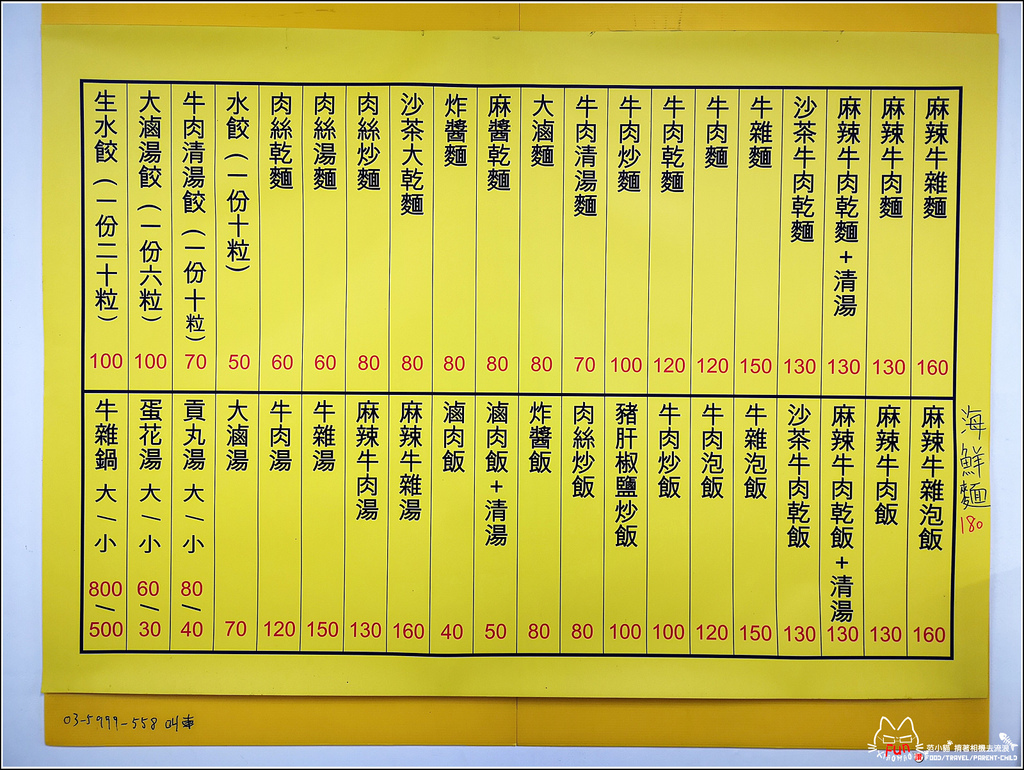 麻辣牛雜麵 160
麻辣牛肉麵 130
麻辣牛肉乾麵+清湯 130
沙茶牛肉乾麵 130
牛雜麵 150
牛肉麵 120
牛肉乾麵 120
牛肉炒麵 100
牛肉清湯麵 70
大滷麵 80
麻醬乾麵 80
炸醬麵 80
沙茶大乾麵 80
肉絲炒麵 80
肉絲湯麵 60
肉絲乾麵 60
水餃(一份十粒) 50
牛肉清湯餃(一份十粒) 70
大滷湯餃(一份六粒) 100
生水餃(一份二十粒) 100
海鮮麵 180
麻辣牛雜泡飯 160
麻辣牛肉飯 130
麻辣牛肉乾飯+清湯 130
沙茶牛肉乾飯 130
牛雜泡飯 150
牛肉泡飯 120
牛肉炒飯 100
豬肝椒鹽炒飯 100
肉絲炒飯 80
炸醬飯 80
滷肉飯+清湯 50
滷肉飯 40
麻辣牛雜湯 160
麻辣牛肉湯 130
牛雜湯 150
牛肉湯 120
大滷湯 70
貢丸湯 大/小 80/40
蛋花湯 大/小 60/30
牛雜鍋 大/小 800/500
03-5999-558 叫車
FUN
范小貓 揹著相機去流浪
FOOD/TRAVEL/PARENT-CHILD